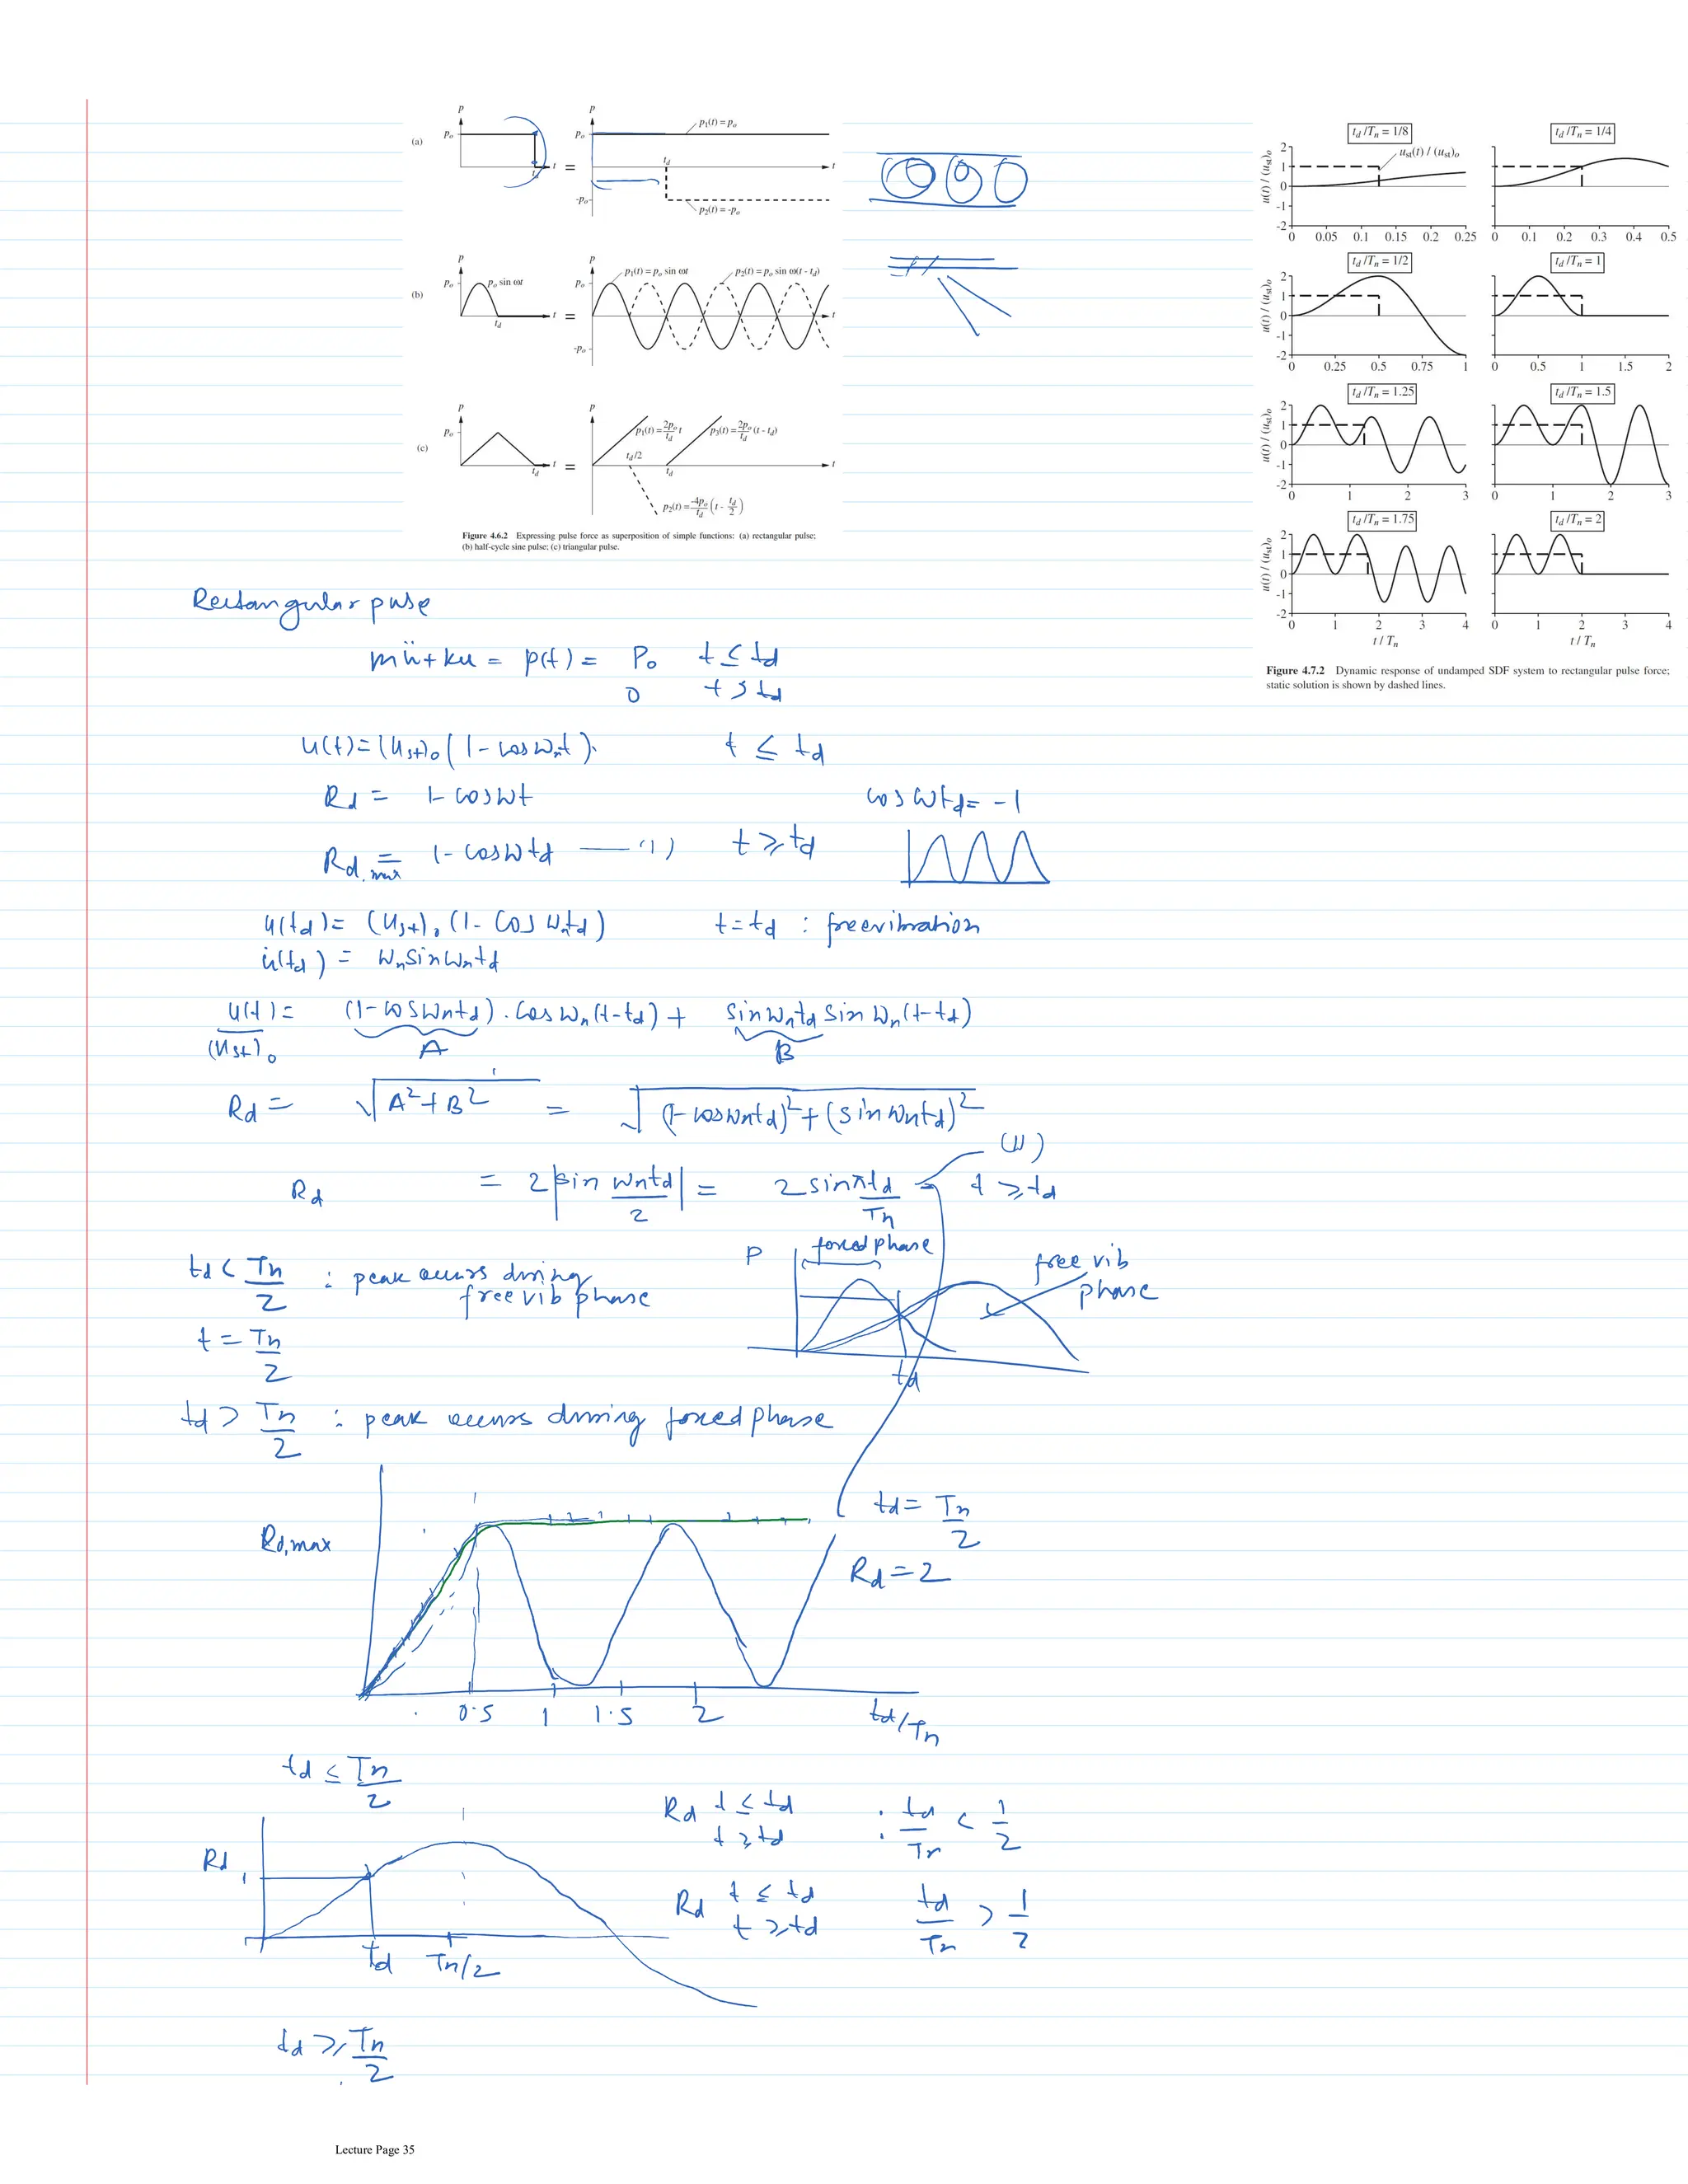 (a)
p
p_o
t_d
t
=
p
p_o
p_1(t) = p_o
t_d
t
-p_o
p_2(t) = -p_o
(b)
p
p_o
p_o sin ωt
t_d
t
=
p
p_o
p_1(t) = p_o sin ωt
p_2(t) = p_o sin ω(t - t_d)
t
-p_o
(c)
p
p_o
t_d
t
=
p
p_1(t) = 2p_o/t_d t
p_3(t) = 2p_o/t_d (t - t_d)
t_d/2
t_d
t
p_2(t) = -4p_o/t_d (t - t_d/2)
Figure 4.6.2 Expressing pulse force as superposition of simple functions: (a) rectangular pulse;
(b) half-cycle sine pulse; (c) triangular pulse.
t_d /T_n = 1/8
t_d /T_n = 1/4
u_st(t) / (u_st)_o
u(t) / (u_st)_o
2
1
0
-1
-2
0 0.05 0.1 0.15 0.2 0.25
0 0.1 0.2 0.3 0.4 0.5
t_d /T_n = 1/2
t_d /T_n = 1
u(t) / (u_st)_o
2
1
0
-1
-2
0 0.25 0.5 0.75 1
0 0.5 1 1.5 2
t_d /T_n = 1.25
t_d /T_n = 1.5
u(t) / (u_st)_o
2
1
0
-1
-2
0 1 2 3
0 1 2 3
t_d /T_n = 1.75
t_d /T_n = 2
u(t) / (u_st)_o
2
1
0
-1
-2
0 1 2 3 4
0 1 2 3 4
t / T_n
t / T_n
Figure 4.7.2 Dynamic response of undamped SDF system to rectangular pulse force;
static solution is shown by dashed lines.
Rectangular pulse
mü + ku = p(t) = P_o t ≤ t_d
0 t ≥ t_d
u(t) = (u_st)_o (1 - cos ω_n t). t ≤ t_d
R_d = 1 - cos ωt cos ωt_d = -1
R_d,max = 1 - cos ωt_d — (1) t ≥ t_d
u(t_d) = (u_st)_o (1 - cos ω_n t_d) t = t_d : free vibration
u̇(t_d) = ω_n sin ω_n t_d
u(t)/(u_st)_o = (1 - cos ω_n t_d) . cos ω_n (t - t_d) + sin ω_n t_d sin ω_n (t - t_d)
A B
R_d = √(A² + B²) = √((1 - cos ω_n t_d)² + (sin ω_n t_d)²)
(II)
R_d = 2|sin ω_n t_d/2| = 2 sin π t_d/T_n t ≥ t_d
P forced phase
free vib
phase
t_d
t_d < T_n/2 : peak occurs during
free vib phase
t = T_n/2
t_d > T_n/2 : peak occurs during forced phase
R_d,max
t_d = T_n/2
R_d = 2
0.5 1 1.5 2
t_d/T_n
t_d ≤ T_n/2
R_d
1
t_d T_n/2
R_d t ≤ t_d : t_d/T_n < 1/2
t ≥ t_d
R_d t ≤ t_d t_d/T_n > 1/2
t ≥ t_d
t_d ≥ T_n/2
Lecture Page 35